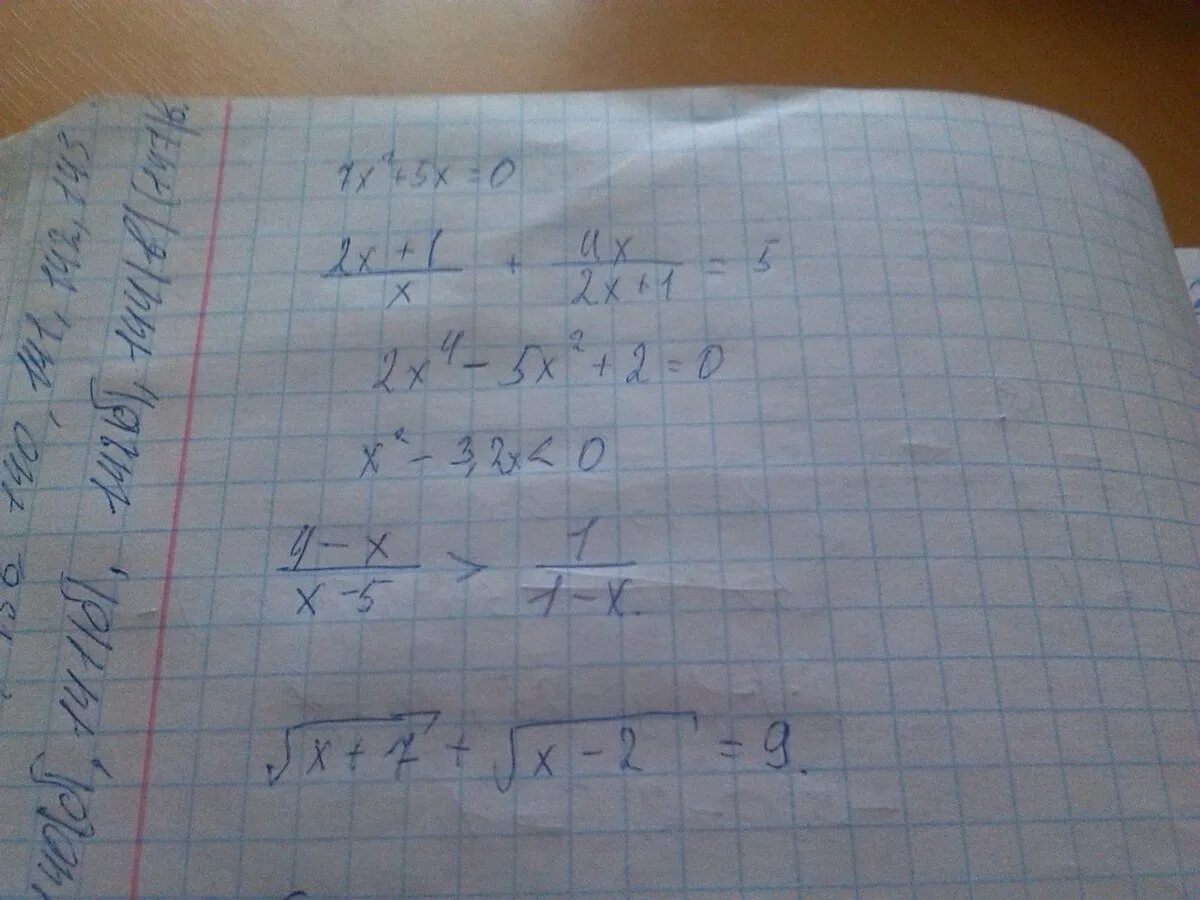 7x²+5x=0
(2x+1)/x + 4x/(2x+1) = 5
2x⁴ - 5x² + 2 = 0
x² - 3,2x < 0
(4-x)/(x-5) > 1/(1-x).
√(x+7) + √(x-2) = 9.
140, 141, 142, 143
140(б), 141(б), 142(б), 144(в) (147(в).